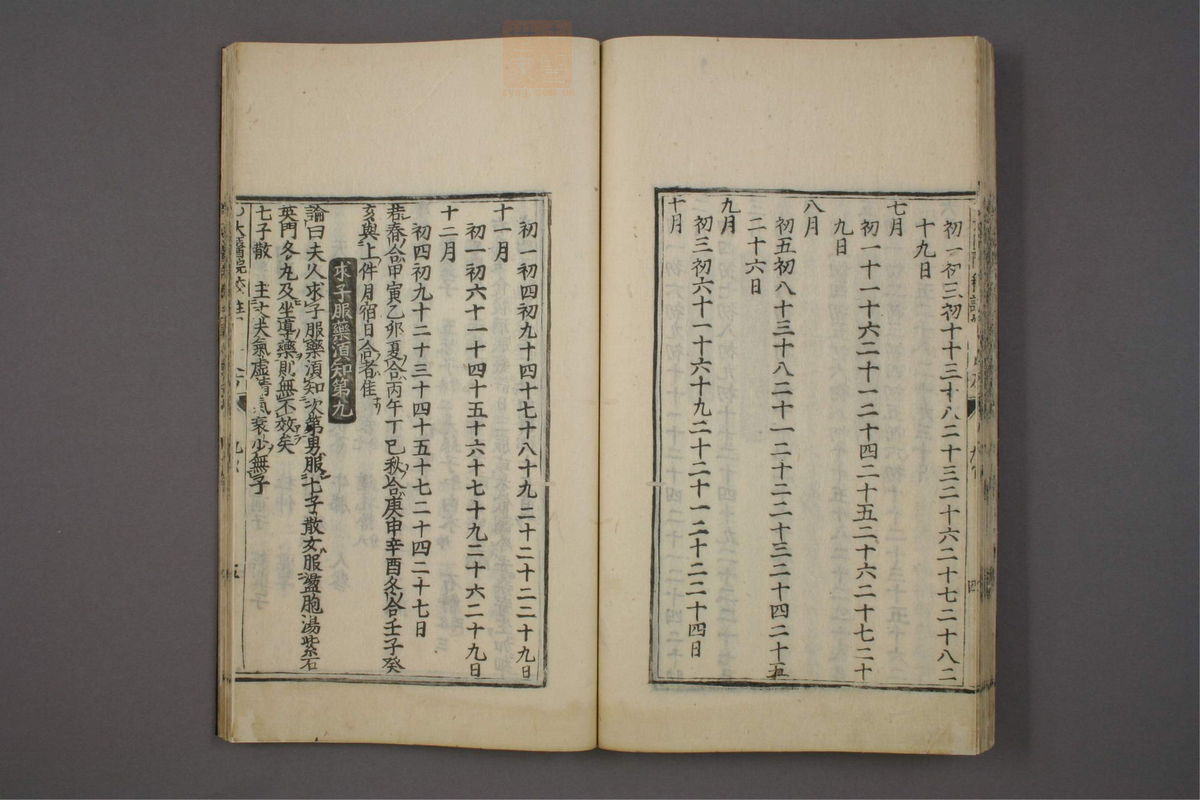 初一初三初十十三十八二十三二十六二十七二十八二
十九日
七月
初一十一十六二十一二十四二十五二十六二十七二十
九日
八月
初五初八十三十八二十一二十二二十三二十四二十五
二十六日
九月
初三初六十一十六十九二十二十一二十二二十四日
十月
四
初一初四初九十四十七十八十九二十二十二二十九日
十一月
初一初六十一十四十五十六十七十九二十六二十九日
十二月
初四初九十二十三十四十五十七二十四二十七日
若春合甲寅乙卯夏合丙午丁巳秋合庚申辛酉冬合壬子癸
亥與上件月宿日合者佳
求子服藥須知第九
論曰夫人求子服藥須知次第男服七子散女服盪胞湯紫石
英門冬丸及坐導藥則無不效矣
七子散 主丈夫氣虛精氣衰少無子
大醫院校註